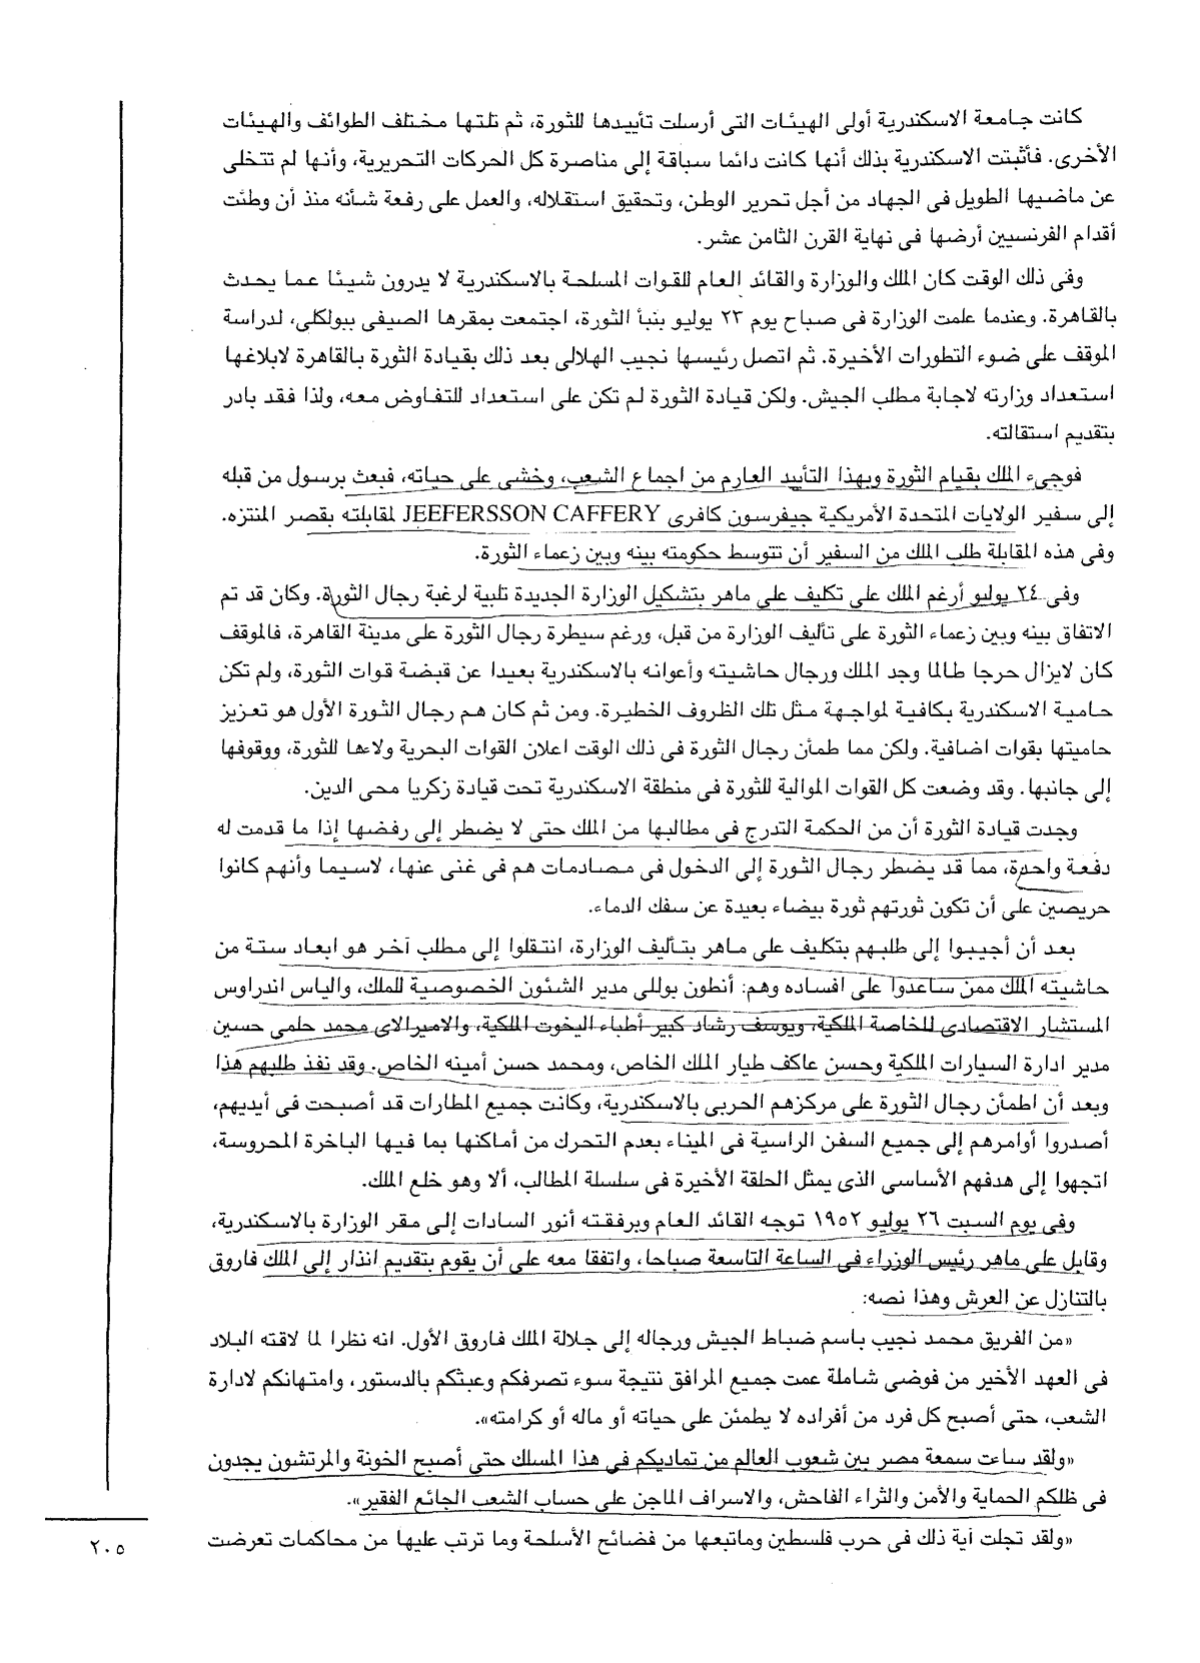 كانت جامعة الاسكندرية أولى الهيئات التى أرسلت تأييدها للثورة، ثم تلتها مختلف الطوائف والهيئات
الأخرى. فأثبتت الاسكندرية بذلك أنها كانت دائما سباقة إلى مناصرة كل الحركات التحريرية، وأنها لم تتخلى
عن ماضيها الطويل فى الجهاد من أجل تحرير الوطن، وتحقيق استقلاله، والعمل على رفعة شأنه منذ أن وطئت
أقدام الفرنسيين أرضها فى نهاية القرن الثامن عشر.
وفى ذلك الوقت كان الملك والوزارة والقائد العام للقوات المسلحة بالاسكندرية لا يدرون شيئا عما يحدث
بالقاهرة. وعندما علمت الوزارة فى صباح يوم ٢٣ يوليو بنبأ الثورة، اجتمعت بمقرها الصيفى ببولكلى، لدراسة
الموقف على ضوء التطورات الأخيرة. ثم اتصل رئيسها نجيب الهلالى بعد ذلك بقيادة الثورة بالقاهرة لابلاغها
استعداد وزارته لاجابة مطلب الجيش. ولكن قيادة الثورة لم تكن على استعداد للتفاوض معه، ولذا فقد بادر
بتقديم استقالته.
فوجىء الملك بقيام الثورة وبهذا التأييد العارم من اجماع الشعب، وخشى على حياته، فبعث برسول من قبله
إلى سفير الولايات المتحدة الأمريكية جيفرسون كافرى JEEFERSSON CAFFERY لمقابلته بقصر المنتزه.
وفى هذه المقابلة طلب الملك من السفير أن تتوسط حكومته بينه وبين زعماء الثورة.
وفى ٢٤ يوليو أرغم الملك على تكليف على ماهر بتشكيل الوزارة الجديدة تلبية لرغبة رجال الثورة. وكان قد تم
الاتفاق بينه وبين زعماء الثورة على تأليف الوزارة من قبل، ورغم سيطرة رجال الثورة على مدينة القاهرة، فالموقف
كان لايزال حرجا طالما وجد الملك ورجال حاشيته وأعوانه بالاسكندرية بعيدا عن قبضة قوات الثورة، ولم تكن
حامية الاسكندرية بكافية لمواجهة مثل تلك الظروف الخطيرة. ومن ثم كان هم رجال الثورة الأول هو تعزيز
حاميتها بقوات اضافية. ولكن مما طمأن رجال الثورة فى ذلك الوقت اعلان القوات البحرية ولاءها للثورة، ووقوفها
إلى جانبها. وقد وضعت كل القوات الموالية للثورة فى منطقة الاسكندرية تحت قيادة زكريا محى الدين.
وجدت قيادة الثورة أن من الحكمة التدرج فى مطالبها من الملك حتى لا يضطر إلى رفضها إذا ما قدمت له
دفعة واحدة، مما قد يضطر رجال الثورة إلى الدخول فى مصادمات هم فى غنى عنها، لاسيما وأنهم كانوا
حريصين على أن تكون ثورتهم ثورة بيضاء بعيدة عن سفك الدماء.
بعد أن أجيبوا إلى طلبهم بتكليف على ماهر بتأليف الوزارة، انتقلوا إلى مطلب آخر هو ابعاد ستة من
حاشيته الملك ممن ساعدوا على افساده وهم: أنطون بوللى مدير الشئون الخصوصية للملك، والياس اندراوس
المستشار الاقتصادى للخاصة الملكية، ويوسف رشاد كبير أطباء اليخوت الملكية، والاميرالاى محمد حلمى حسين
مدير ادارة السيارات الملكية وحسن عاكف طيار الملك الخاص، ومحمد حسن أمينه الخاص. وقد نفذ طلبهم هذا
وبعد أن اطمأن رجال الثورة على مركزهم الحربى بالاسكندرية، وكانت جميع المطارات قد أصبحت فى أيديهم،
أصدروا أوامرهم إلى جميع السفن الراسية فى الميناء بعدم التحرك من أماكنها بما فيها الباخرة المحروسة،
اتجهوا إلى هدفهم الأساسى الذى يمثل الحلقة الأخيرة فى سلسلة المطالب، ألا وهو خلع الملك.
وفى يوم السبت ٢٦ يوليو ١٩٥٢ توجه القائد العام وبرفقته أنور السادات إلى مقر الوزارة بالاسكندرية،
وقابل على ماهر رئيس الوزراء فى الساعة التاسعة صباحا، واتفقا معه على أن يقوم بتقديم انذار إلى الملك فاروق
بالتنازل عن العرش وهذا نصه:
«من الفريق محمد نجيب باسم ضباط الجيش ورجاله إلى جلالة الملك فاروق الأول. انه نظرا لما لاقته البلاد
فى العهد الأخير من فوضى شاملة عمت جميع المرافق نتيجة سوء تصرفكم وعبثكم بالدستور، وامتهانكم لادارة
الشعب، حتى أصبح كل فرد من أفراده لا يطمئن على حياته أو ماله أو كرامته».
«ولقد ساءت سمعة مصر بين شعوب العالم من تماديكم فى هذا المسلك حتى أصبح الخونة والمرتشون يجدون
فى ظلكم الحماية والأمن والثراء الفاحش، والاسراف الماجن على حساب الشعب الجائع الفقير».
«ولقد تجلت آية ذلك فى حرب فلسطين وماتبعها من فضائح الأسلحة وما ترتب عليها من محاكمات تعرضت
٢٠٥